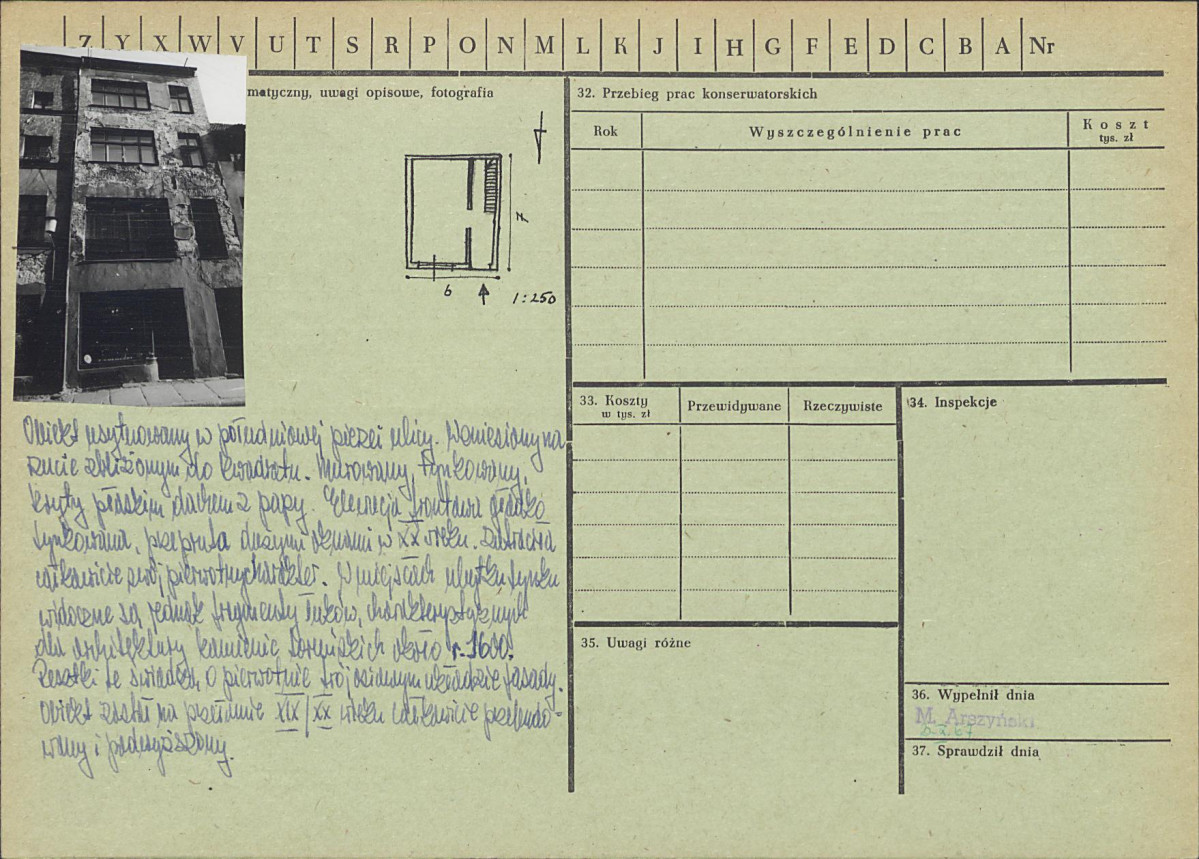 Z Y X W V U T S R P O N M L K J I H G F E D C B A Nr
matyczny, uwagi opisowe, fotografia
7
6
1:250
Obiekt usytuowany w południowej pierzei ulicy. Wzniesiony na
rzucie zbliżonym do kwadratu. Murowany, tynkowany,
kryty płaskim dachem z papy. Elewacja frontowa gładko
tynkowana, przepruta dużymi oknami w XX wieku. Zatraciła
całkowicie swój pierwotny charakter. W miejscach ubytku tynku
widoczne są jednak fragmenty łuków, charakterystycznych
dla architektury kamienic toruńskich około r. 1600.
Resztki te świadczą o pierwotnie trójosiowym układzie fasady.
Obiekt został na przełomie XIX/XX wieku całkowicie przebudo-
wany i podwyższony.
32. Przebieg prac konserwatorskich
Rok Wyszczególnienie prac Koszt
tys. zł
33. Koszty
w tys. zł
Przewidywane Rzeczywiste
34. Inspekcje
35. Uwagi różne
36. Wypełnił dnia
M. Arszyński
37. Sprawdził dnia